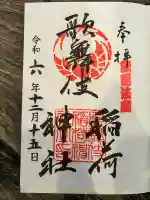 奉拝
歌舞伎
稲荷
神社
令和六年十二月十五日